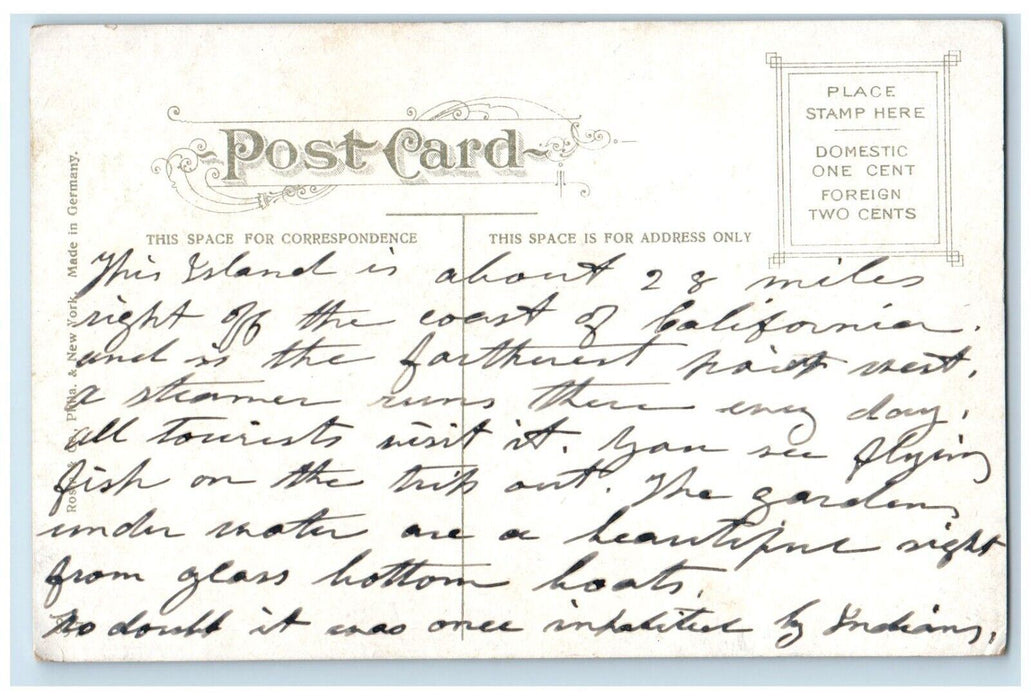 Post Card
PLACE
STAMP HERE
DOMESTIC
ONE CENT
FOREIGN
TWO CENTS
THIS SPACE FOR CORRESPONDENCE
THIS SPACE IS FOR ADDRESS ONLY
Phila. & New York. Made in Germany.
This Island is about 28 miles
right off the coast of California.
and is the fartherest point west.
a steamer runs there every day.
all Tourists visit it. You see flying
fish on the trip out. The gardens
under water are a beautiful sight
from glass bottom boats.
No doubt it was once inhabited by Indians.